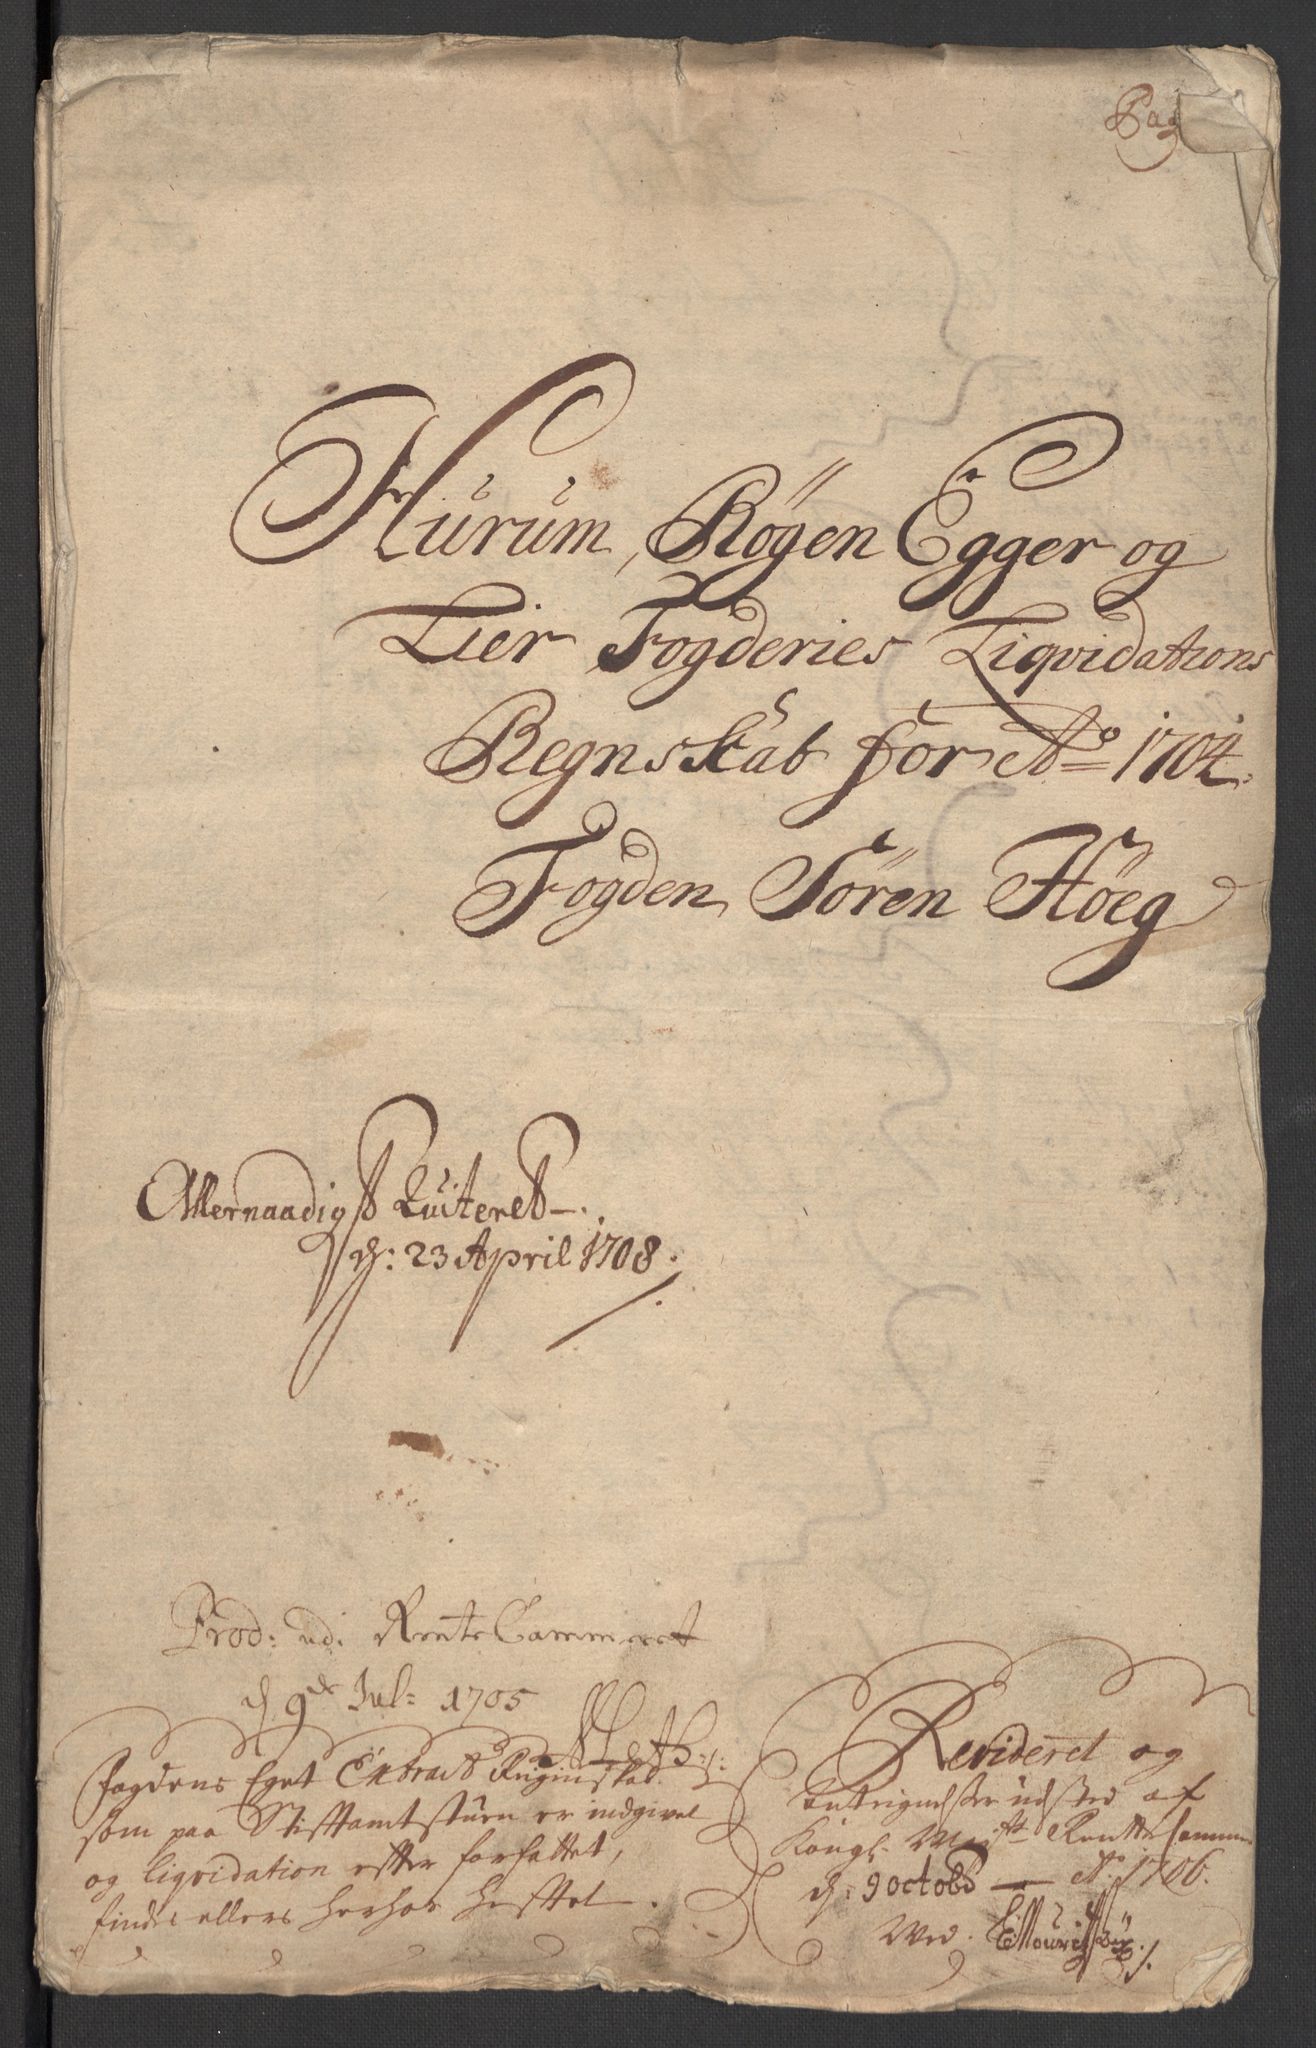 Pag
Hurum, Røgen Egger og
Lier Fogderies Liqvidations
Regnskab for Ao 1704.
Fogden Søren Høeg
Allernaadigst Quiteret
d: 23 April 1708.
Prod: udi RenteCammeret
d 9de Jul: 1705
Fogdens Eget Extract Regenskab
som paa Stiftamtstuen er indgivet
og liqvidation efter forfattet,
findes ellers herhos heftet.
Revideret og
udsted af
Kongl. Maÿts RentteCammer
d: 9 octobr Ao 1706.
Wed.